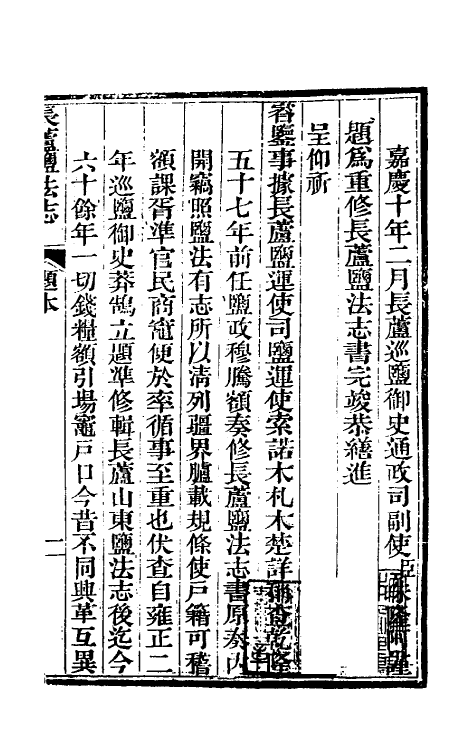 嘉慶十年二月長蘆巡鹽御史通政司副使臣
題爲重修長蘆鹽法志書完竣恭繕進
呈仰祈
睿鑒事據長蘆鹽運使司鹽運使索諾木札木楚詳稱查乾隆
五十七年前任鹽政穆騰額奏修長蘆鹽法志書原奏內
開竊照鹽法有志所以清列疆界臚載規條使戶籍可稽
額課胥準官民商竈便於率循事至重也伏查自雍正二
年巡鹽御史莽鵠立題準修輯長蘆山東鹽法志後迄今
六十餘年一切錢糧額引場竈戶口今昔不同興革互異
長蘆鹽法志
題本
二